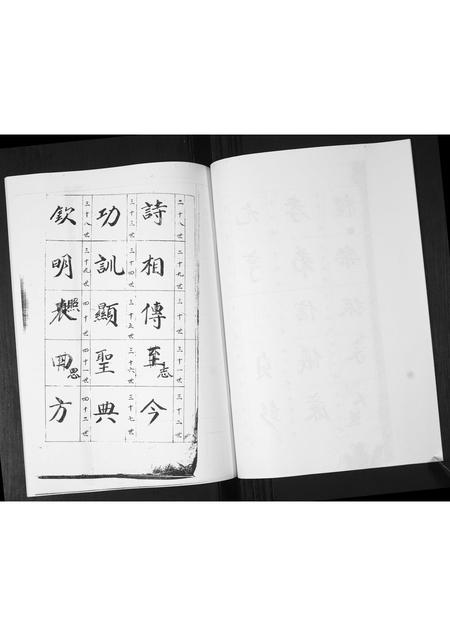 詩 二十八世
相 二十九世
傳 三十世
至 志 三十一世
今 三十二世
功 三十三世
訓 三十四世
顯 三十五世
聖 三十六世
典 三十七世
欽 三十八世
明 三十九世
照 四十世
思 四十一世
方 四十二世